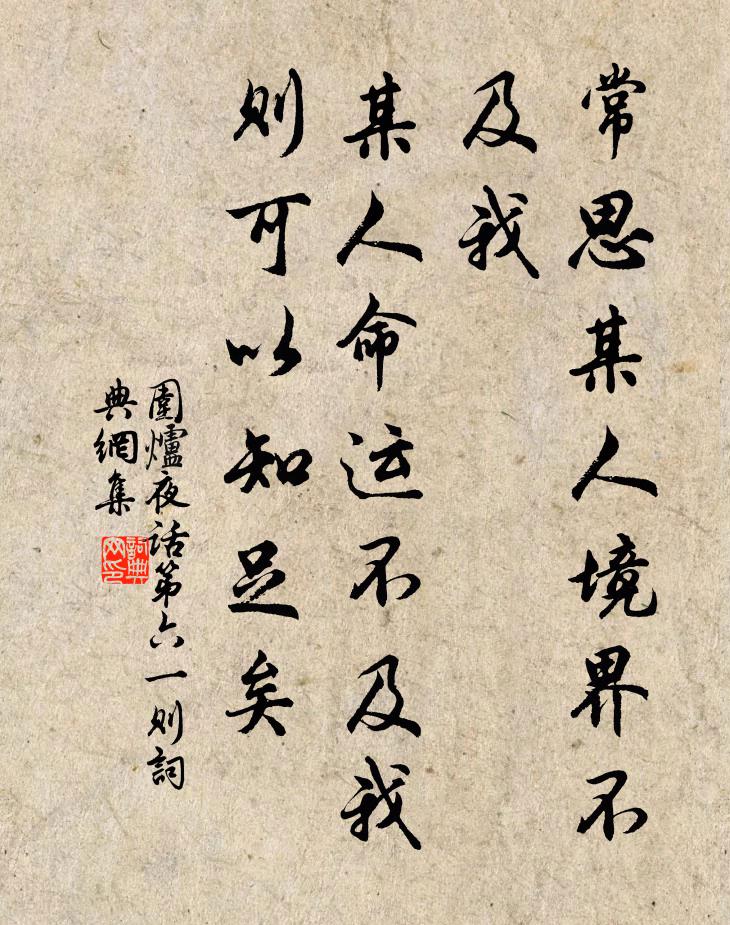 常思某人境界不
及我
某人命运不及我
则可以知足矣
圍爐夜话第六一则詞
典網集
詞典
网印